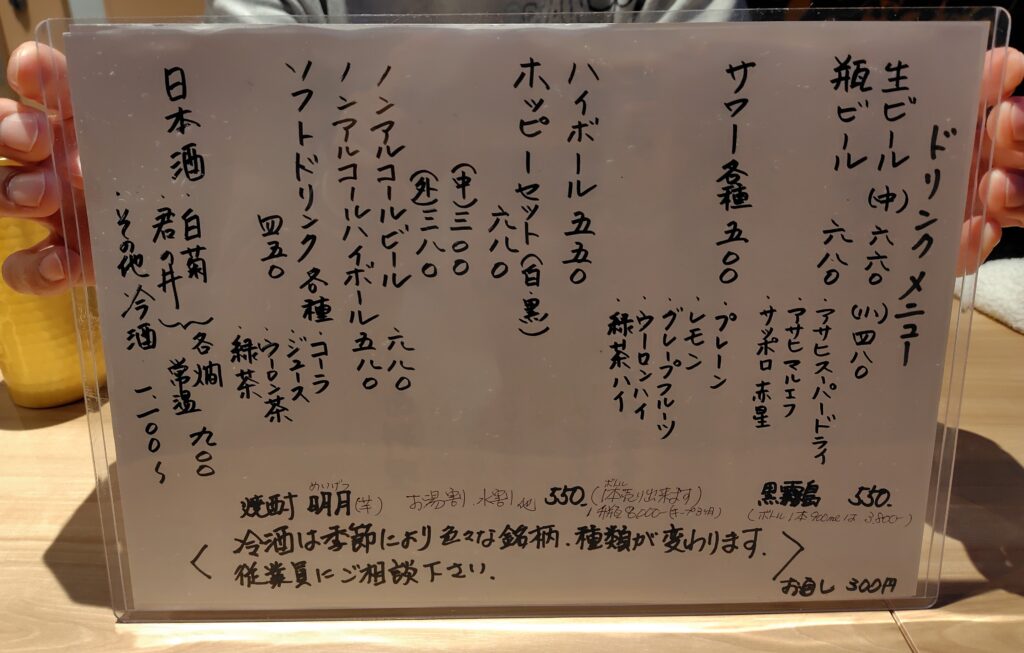 ドリンクメニュー
生ビール(中)六六〇 (小)四八〇
瓶ビール 六八〇
・アサヒスーパードライ
・アサヒマルエフ
・サッポロ赤星
サワー各種 五〇〇
・プレーン
・レモン
・グレープフルーツ
・ウーロンハイ
・緑茶ハイ
ハイボール 五五〇
ホッピーセット(白・黒)
六八〇
(中)三〇〇
(外)三八〇
ノンアルコールビール 六八〇
ノンアルコールハイボール 五八〇
ソフトドリンク各種
四五〇
・コーラ
・ジュース
・ウーロン茶
・緑茶
日本酒
・白菊
・君の井
各燗
常温 九〇〇
・その他冷酒 一、一〇〇〜
焼酎 明月(芋) お湯割、水割他 550.
めいげつ
ボトル
(1本売り出来ます)
黒霧島 550.
(ボトル1本900mlは3,800-)
〈冷酒は季節により色々な銘柄、種類が変わります。
従業員にご相談下さい.〉
お通し 300円